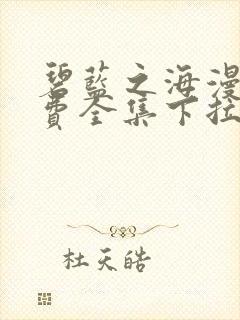 碧藍之海漫
費全集下拉
杜天皓